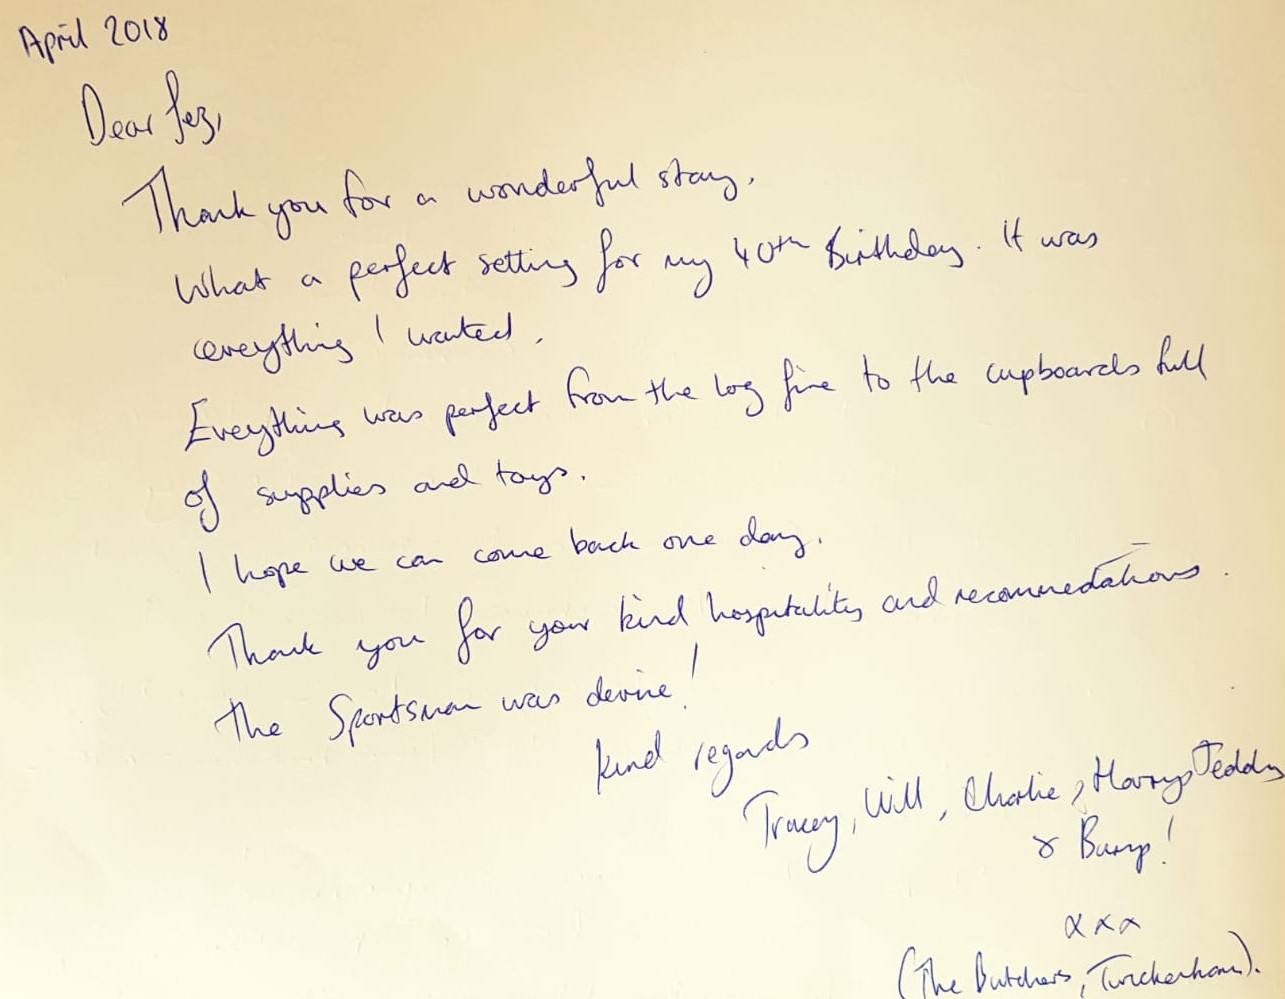 April 2018
Dear Fez,
Thank you for a wonderful stay.
What a perfect setting for my 40th Birthday. It was
everything I wanted.
Everything was perfect from the log fire to the cupboards full
of supplies and toys.
I hope we can come back one day.
Thank you for your kind hospitality and recommedations.
The Sportsman was devine!
Kind regards
Tracey, Will, Charlie, Harry, Teddy
& Bump!
xxx
(The Butchers, Twickenham).